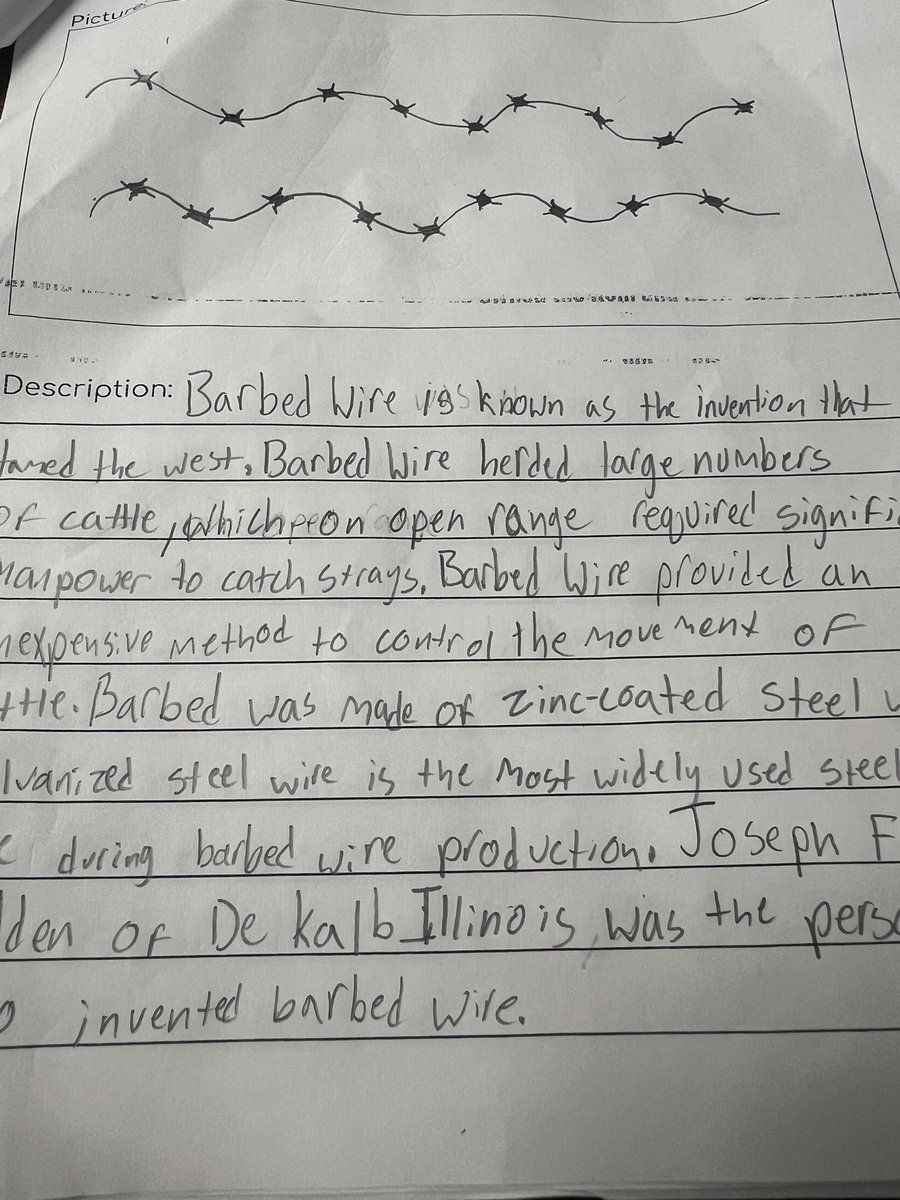 Picture:
Description: Barbed Wire is known as the invention that
tamed the west. Barbed Wire herded large numbers
of cattle, which on open range required signifi
Manpower to catch strays. Barbed Wire provided an
nexpensive method to control the movement of
ttle. Barbed was made of zinc-coated steel w
lvanized steel wire is the most widely used steel
during barbed wire production. Joseph F
lden of De kalb Illinois, was the perso
o invented barbed wire.